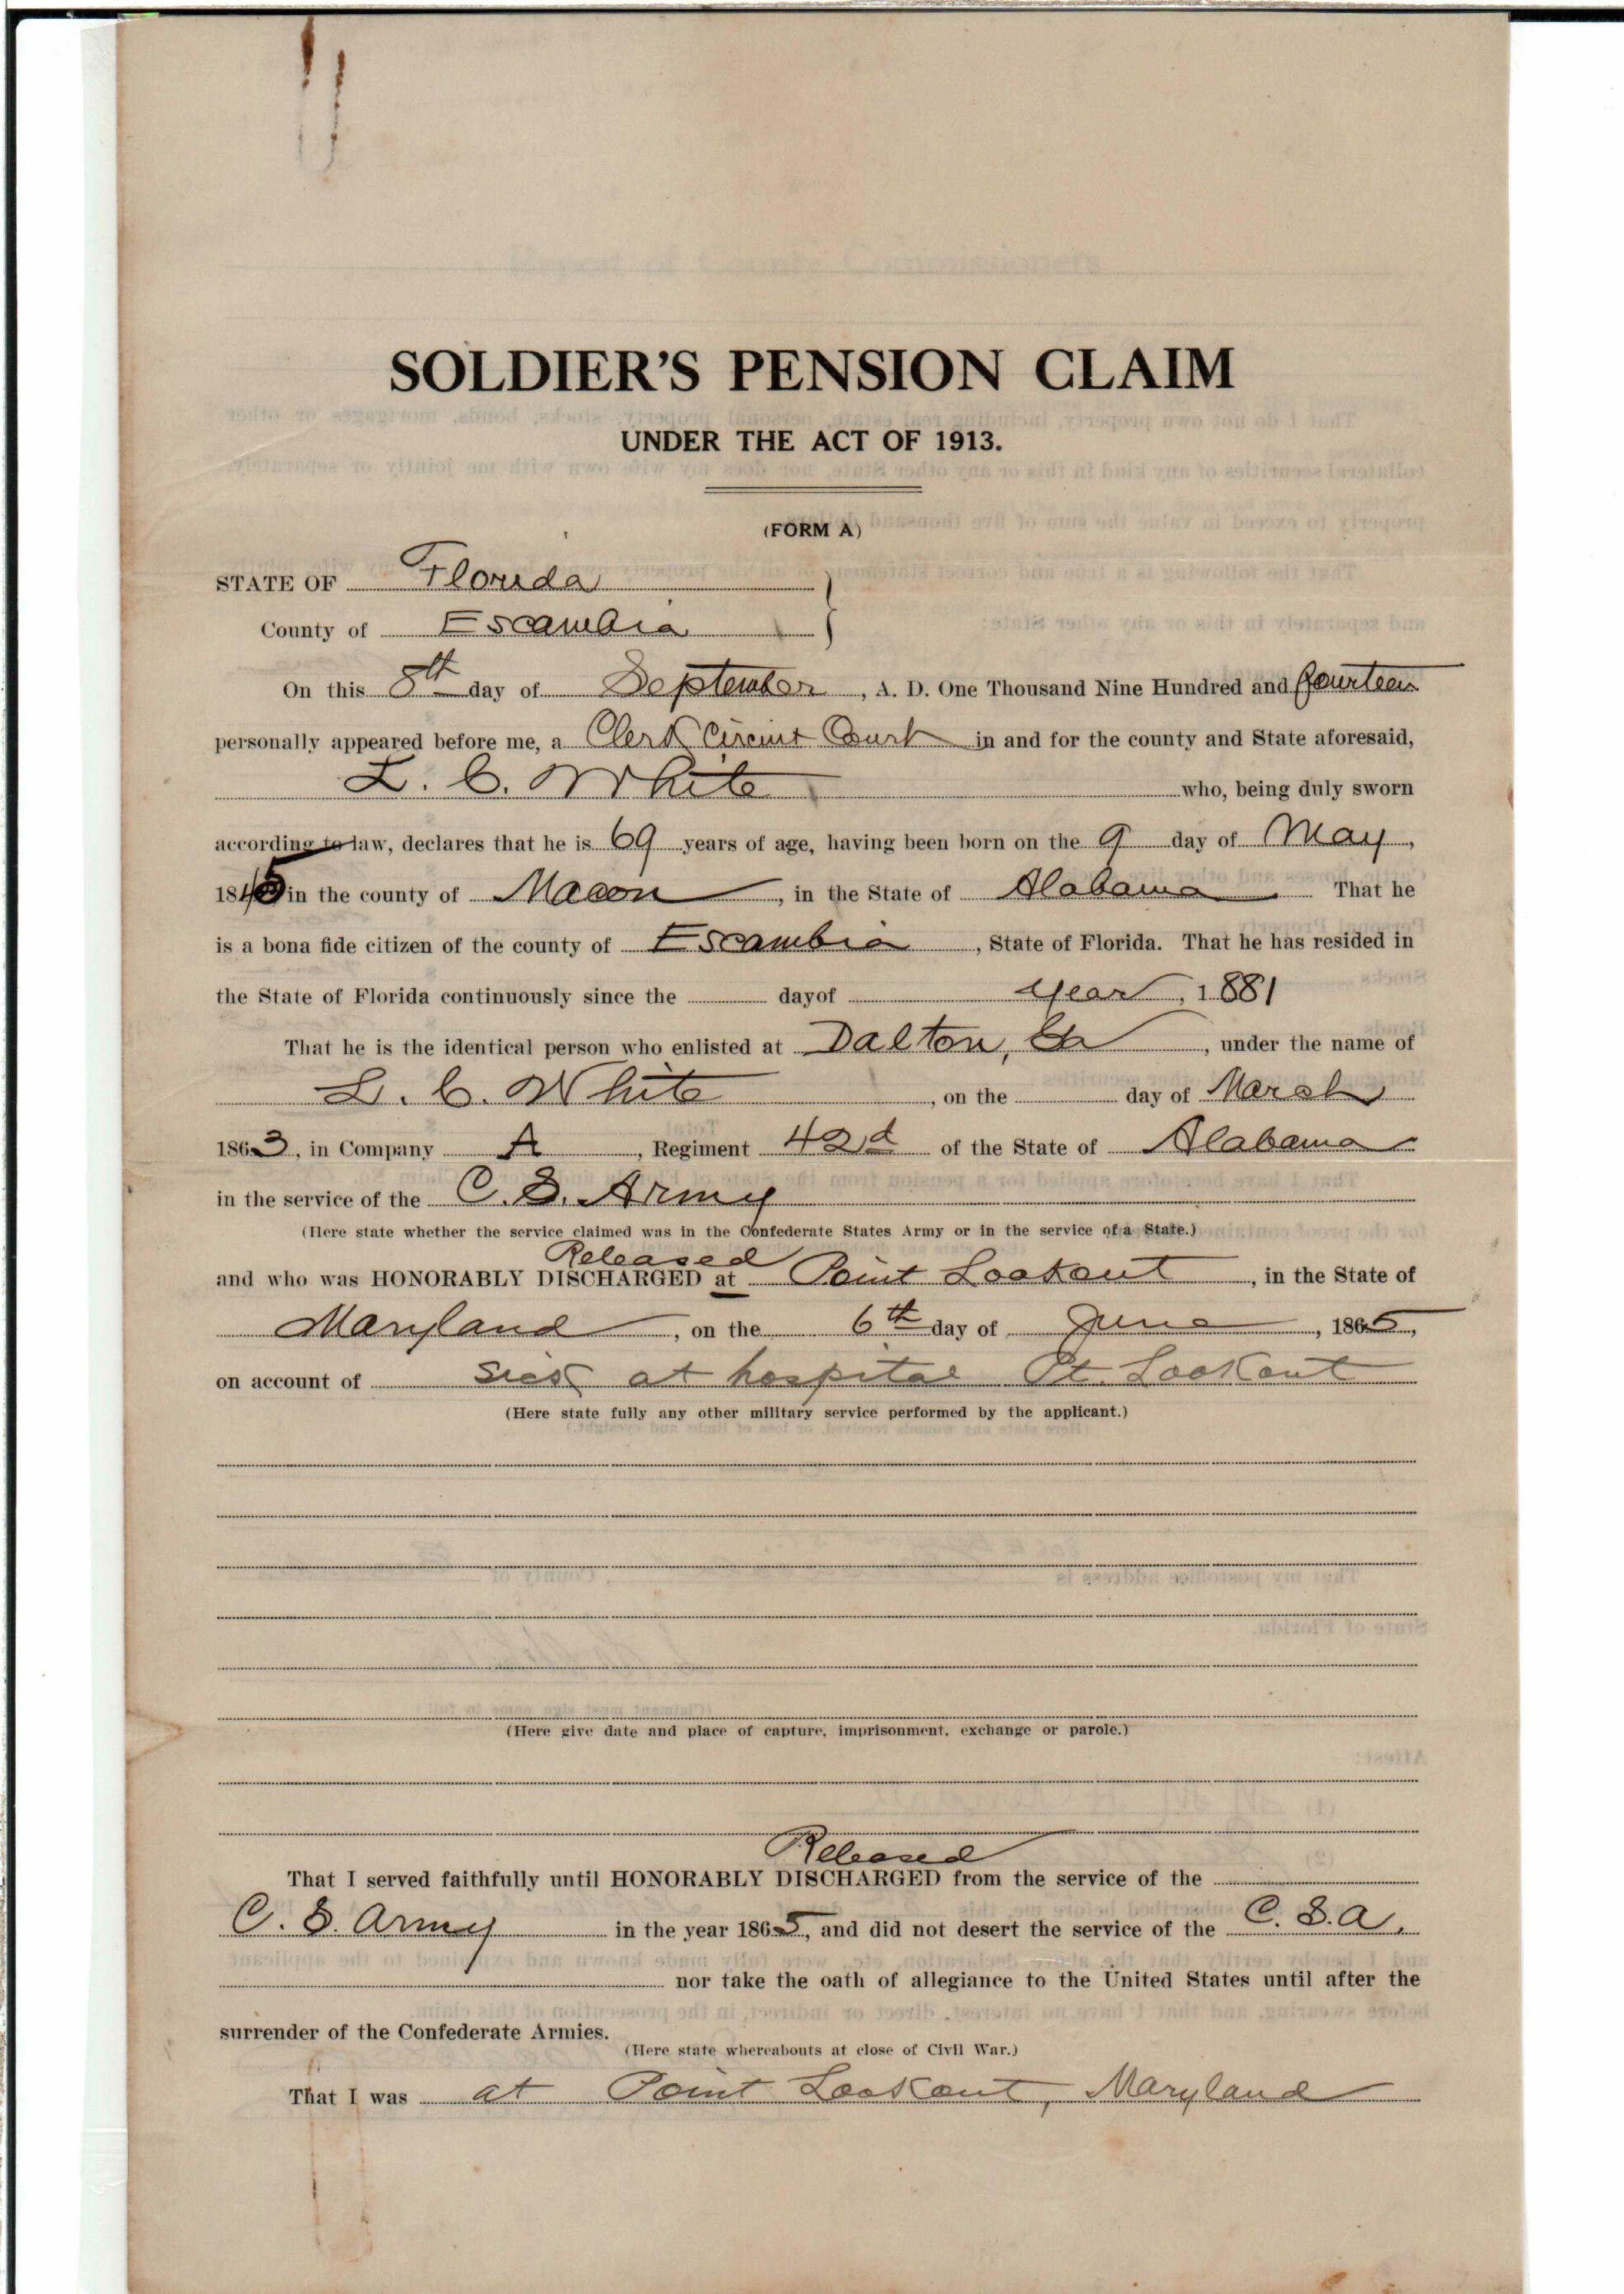 SOLDIER'S PENSION CLAIM
UNDER THE ACT OF 1913.
(FORM A)
STATE OF Florida
County of Escambia
On this 8th day of September, A. D. One Thousand Nine Hundred and fourteen
personally appeared before me, a Clerk Circuit Court in and for the county and State aforesaid,
L. C. White who, being duly sworn
according to law, declares that he is 69 years of age, having been born on the 9 day of May,
1845 in the county of Macon, in the State of Alabama That he
is a bona fide citizen of the county of Escambia, State of Florida. That he has resided in
the State of Florida continuously since the day of year, 1881
That he is the identical person who enlisted at Dalton, Ga, under the name of
L. C. White, on the day of March
1863, in Company A, Regiment 42d of the State of Alabama
in the service of the C. S. Army
(Here state whether the service claimed was in the Confederate States Army or in the service of a State.)
Released
and who was HONORABLY DISCHARGED at Point Lookout, in the State of
Maryland, on the 6th day of June, 1865,
on account of sick at hospital Pt. Lookout
(Here state fully any other military service performed by the applicant.)
(Here give date and place of capture, imprisonment, exchange or parole.)
Released
That I served faithfully until HONORABLY DISCHARGED from the service of the
C. S. Army in the year 1865, and did not desert the service of the C. S. A.
nor take the oath of allegiance to the United States until after the
surrender of the Confederate Armies.
(Here state whereabouts at close of Civil War.)
That I was at Point Lookout, Maryland